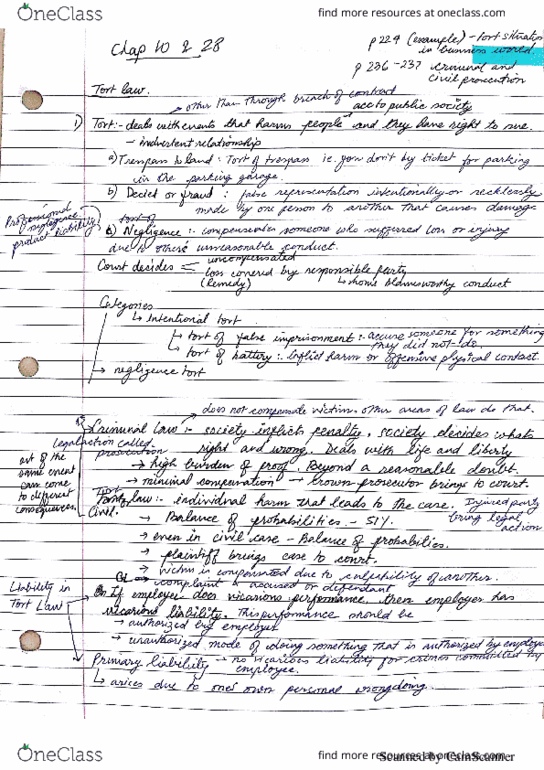 OneClass
find more resources at oneclass.com
Chap 10 & 28
p 224 (example) - tort situation
in business world.
p 236 - 237 criminal and
civil prosecution
Tort law.
other than through breach of contract
acc to public society
1) Tort :- deals with events that harms people and they have right to sue.
- inadvertent relationship
a) Trespass to land : Tort of trespass i.e. you don't by ticket for parking
in the parking garage.
b) Deciet or fraud : false representation intentionally or recklessly
made by one person to another that causes damage
Professional
negligence
product liability
tort of
c) Negligence :- compensates someone who suffered loss or injury
due to others' unreasonable conduct.
Court decides
uncompensated
loss covered by responsible party
(Remedy)
→ blameworthy conduct
Categories
↳ Intentional tort
↳ tort of false imprisonment :- accuse someone for something
they did not do.
↳ tort of battery :- inflict harm or offensive physical contact.
→ negligence tort
does not compensate victim. other areas of law do that.
Criminal Law :- society inflicts penalty, society decides whats
legal action called
prosecution
right and wrong. Deals with life and liberty
→ high burden of proof. Beyond a reasonable doubt.
→ minimal compensation → Crown prosecutor brings to court.
out of the
same event
can come
to different
consequences.
Tort law :- individual harm that leads to the case.
Injured party
bring legal
action
Civil.
→ Balance of probabilities - 51%.
→ even in civil case - Balance of probabilities.
→ plaintiff brings case to court.
→ victim is compensated due to culpability of another.
→ complaint & accused or defendant
Liability in
Tort Law
If employee does vicarious performance, then employer has
vicarious liability. This performance should be
→ authorized by employer
→ unauthorized mode of doing something that is authorized by employer
Primary liability
→ no vicarious liability for crimes committed by
employee.
↳ arises due to one's own personal wrongdoing.
OneClass
find more resources at oneclass.com
Scanned by CamScanner